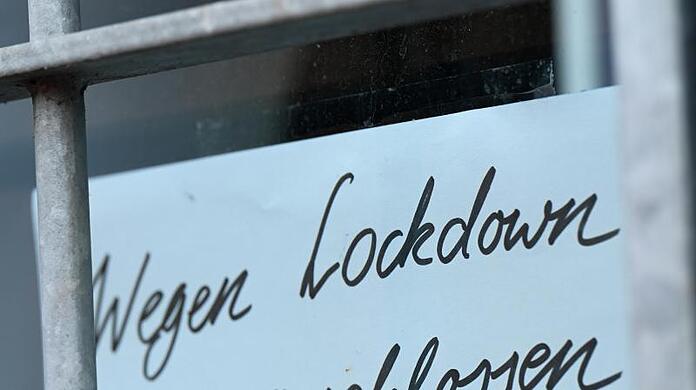 Wegen Lockdown
chlossen